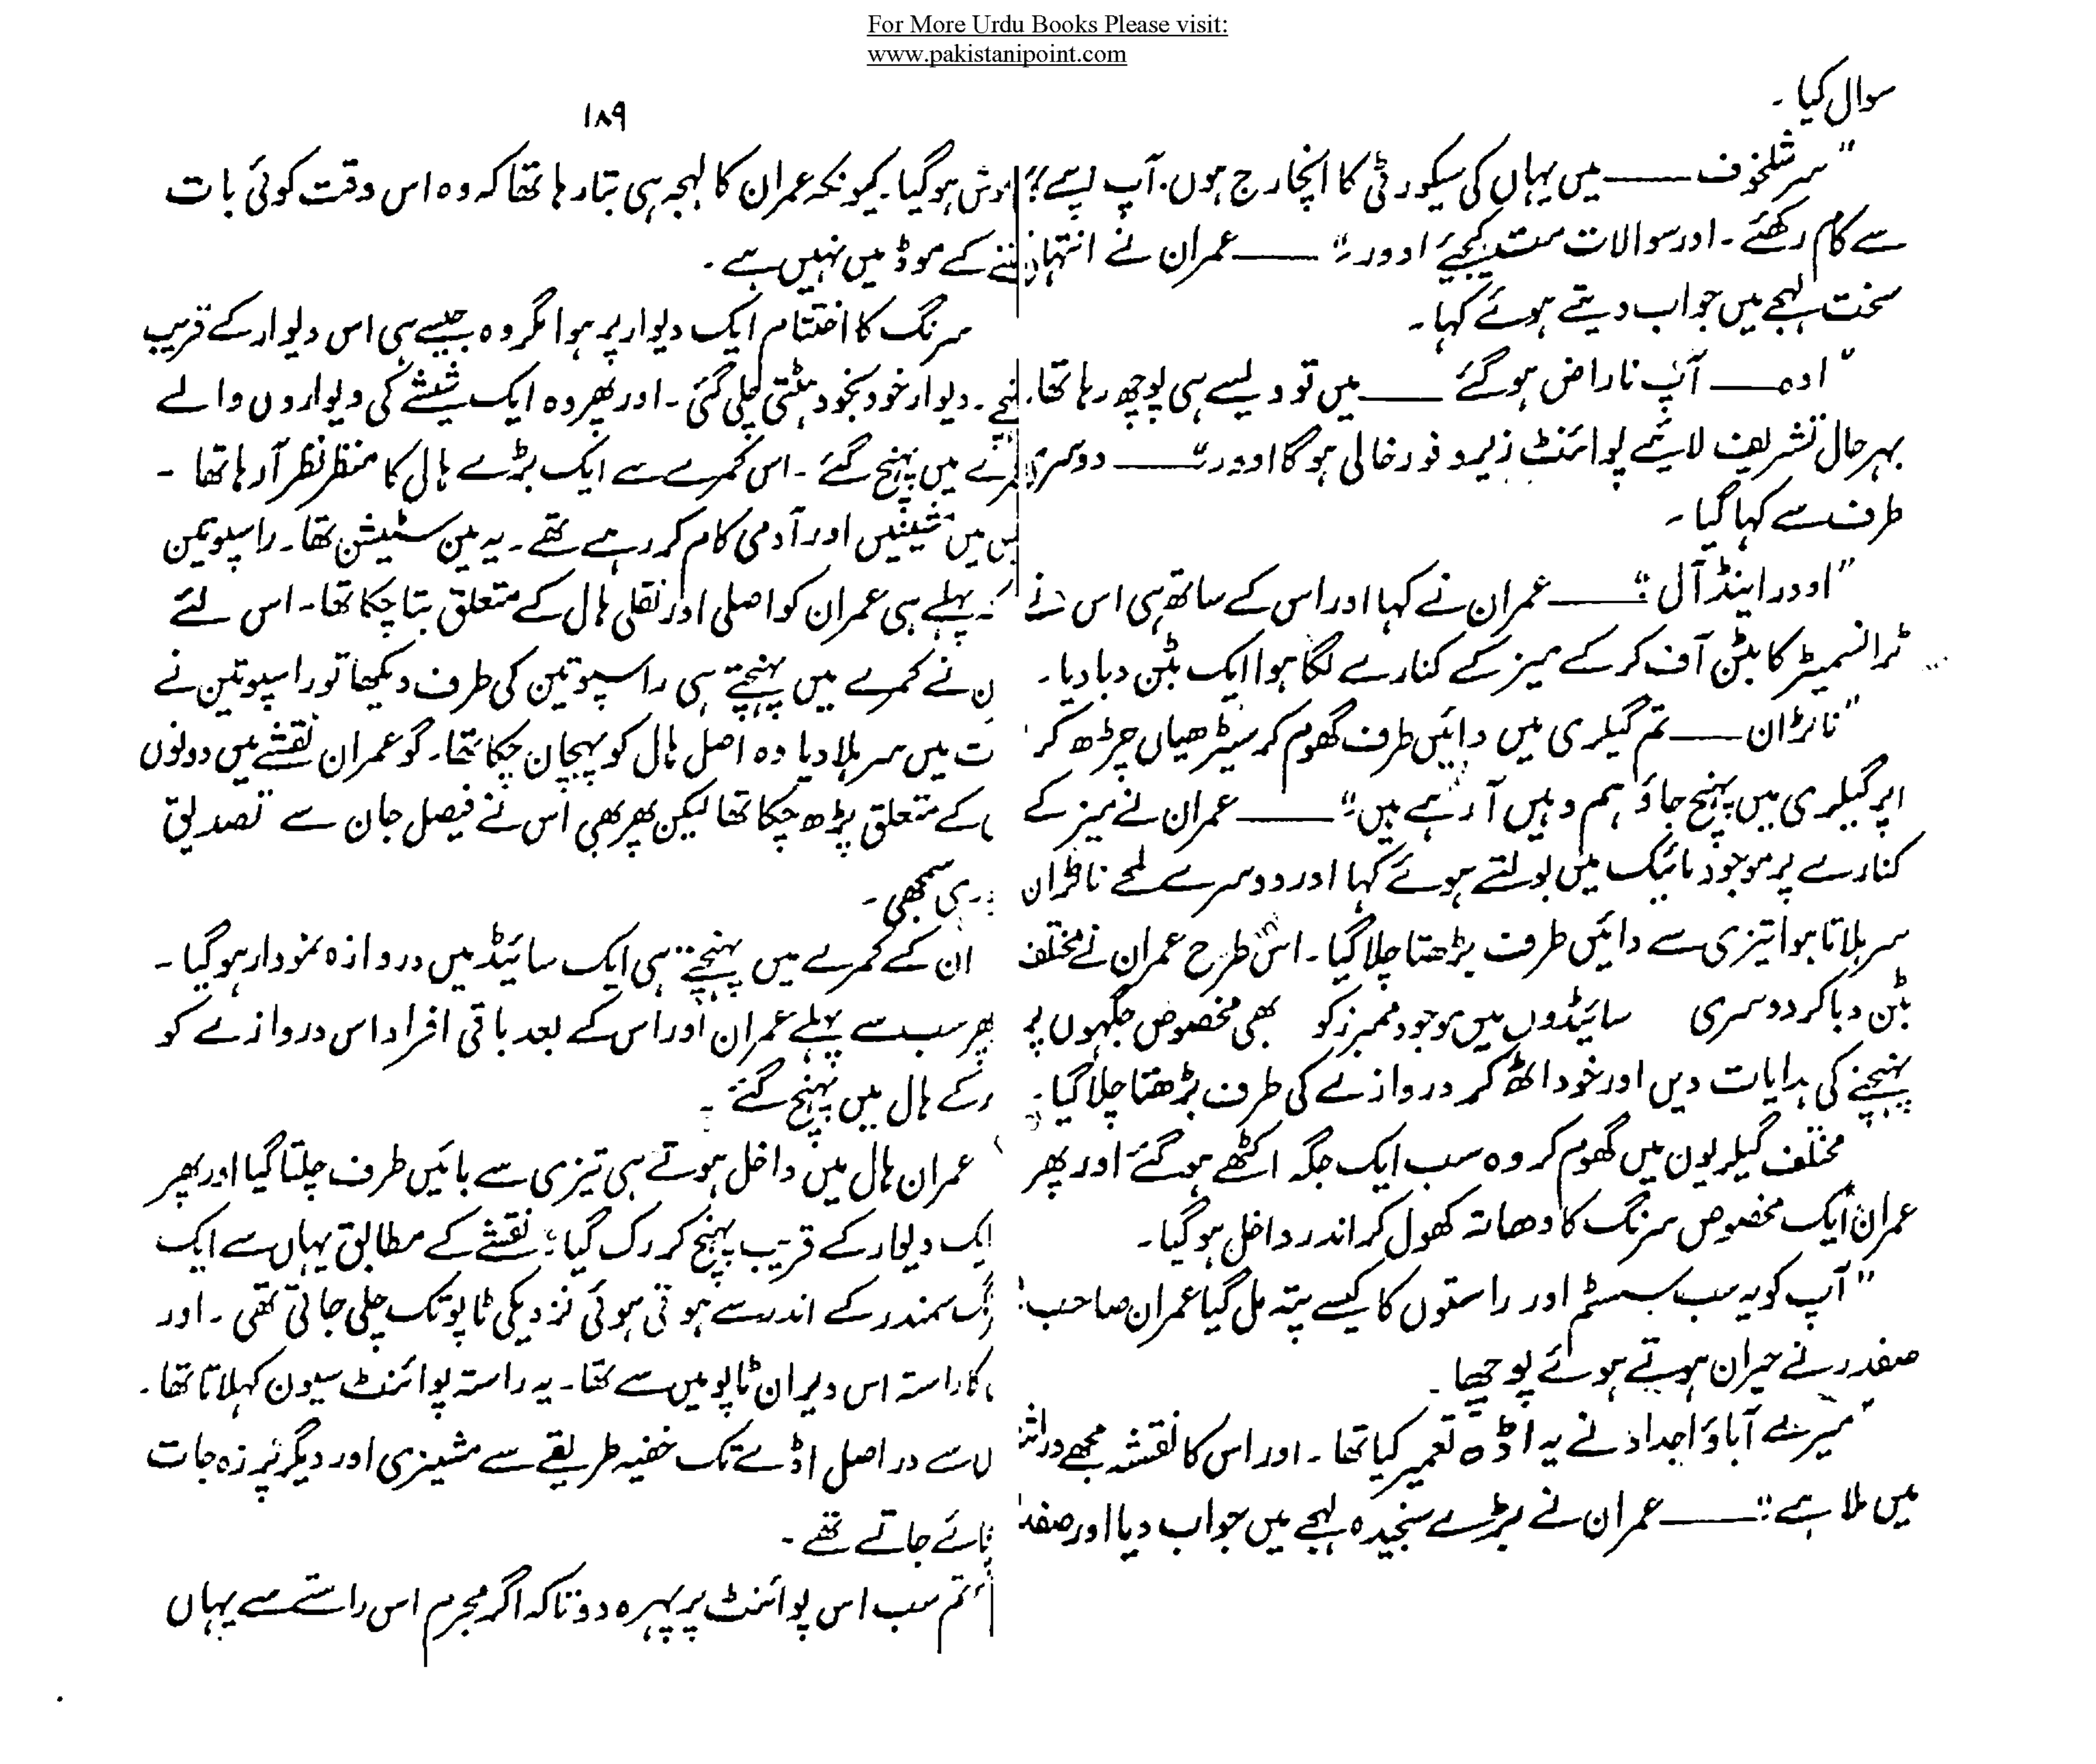 For More Urdu Books Please visit:
www.pakistanipoint.com
سوال کیا ۔
"سر شلخوف ——— میں یہاں کی سیکورٹی کا انچارج ہوں۔ آپ اپنے
سے کام رکھئے ۔ اور سوالات مت کیجئے اوور" ——— عمران نے انتہا
سخت لہجے میں جواب دیتے ہوئے کہا۔
"اوہ —— آپ ناراض ہو گئے ——— میں تو ویسے ہی پوچھ رہا تھا۔
بہرحال تشریف لائیے پوائنٹ زیرو فور خالی ہوگا اوور" ——— دوسری
طرف سے کہا گیا ۔
"اوور اینڈ آل" ——— عمران نے کہا اور اس کے ساتھ ہی اس نے
ٹرانسمیٹر کا بٹن آف کر کے میز کے کنارے لگا ہوا ایک بٹن دبا دیا۔
"ناٹران —— تم گیلری میں دائیں طرف گھوم کر سیڑھیاں چڑھ کر
اپر گیلری میں پہنچ جاؤ ہم وہیں آ رہے ہیں" ——— عمران نے میز کے
کنارے پر موجود مائیک میں بولتے ہوئے کہا اور دوسرے لمحے ناٹران
سر ہلاتا ہوا تیزی سے دائیں طرف بڑھتا چلا گیا ۔ اس طرح عمران نے مختلف
بٹن دبا کر دوسری سائیڈوں میں موجود ممبرز کو بھی مخصوص جگہوں پر
پہنچنے کی ہدایات دیں اور خود اٹھ کر دروازے کی طرف بڑھتا چلا گیا۔
مختلف گیلریوں میں گھوم کر وہ سب ایک جگہ اکٹھے ہو گئے اور پھر
عمران ایک مخصوص سرنگ کا دھانہ کھول کر اندر داخل ہو گیا ۔
"آپ کو یہ سب سسٹم اور راستوں کا کیسے پتہ مل گیا عمران صاحب"
صفدر نے حیران ہوتے ہوئے پوچھا ۔
"میرے آباؤ اجداد نے یہ اڈہ تعمیر کیا تھا ۔ اور اس کا نقشہ مجھے
میں ملا ہے" ——— عمران نے بڑے سنجیدہ لہجے میں جواب دیا اور
۱۸۹
ہو گیا۔ کیونکہ عمران کا لہجہ ہی بتا رہا تھا کہ وہ اس وقت کوئی بات
کے موڈ میں نہیں ہے ۔
سرنگ کا اختتام ایک دیوار پر ہوا مگر وہ جیسے ہی اس دیوار کے قریب
۔ دیوار خود بخود ہٹتی چلی گئی ۔ اور پھر وہ ایک شیشے کی دیواروں والے
میں پہنچ گئے ۔ اس کمرے سے ایک بڑے ہال کا منظر نظر آ رہا تھا ۔
میں مشینیں اور آدمی کام کر رہے تھے ۔ یہ مین سٹیشن تھا۔ راسپوتین
پہلے ہی عمران کو اصلی اور نقلی ہال کے متعلق بتا چکا تھا۔ اس لئے
نے کمرے میں پہنچتے ہی راسپوتین کی طرف دیکھا تو راسپوتین نے
میں سر ہلا دیا وہ اصل ہال کو پہچان چکا تھا۔ گو عمران نقشے میں دونوں
کے متعلق پڑھ چکا تھا لیکن پھر بھی اس نے فیصل جان سے تصدیق
سمجھی ۔
ان کے کمرے میں پہنچتے ہی ایک سائیڈ میں دروازہ نمودار ہو گیا ۔
پھر سب سے پہلے عمران اور اس کے بعد باقی افراد اس دروازے کو
کے ہال میں پہنچ گئے ۔
عمران ہال میں داخل ہوتے ہی تیزی سے بائیں طرف چلتا گیا اور پھر
ایک دیوار کے قریب پہنچ کر رک گیا۔ نقشے کے مطابق یہاں سے ایک
سمندر کے اندر سے ہوتی ہوئی نزدیکی ٹاپو تک چلی جاتی تھی ۔ اور
کا راستہ اس ویران ٹاپو میں سے تھا۔ یہ راستہ پوائنٹ سیون کہلاتا تھا ۔
سے دراصل اڈے تک خفیہ طریقے سے مشینری اور دیگر پرزہ جات
جاتے تھے ۔
"تم سب اس پوائنٹ پر پہرہ دو تاکہ اگر مجرم اس راستے سے یہاں